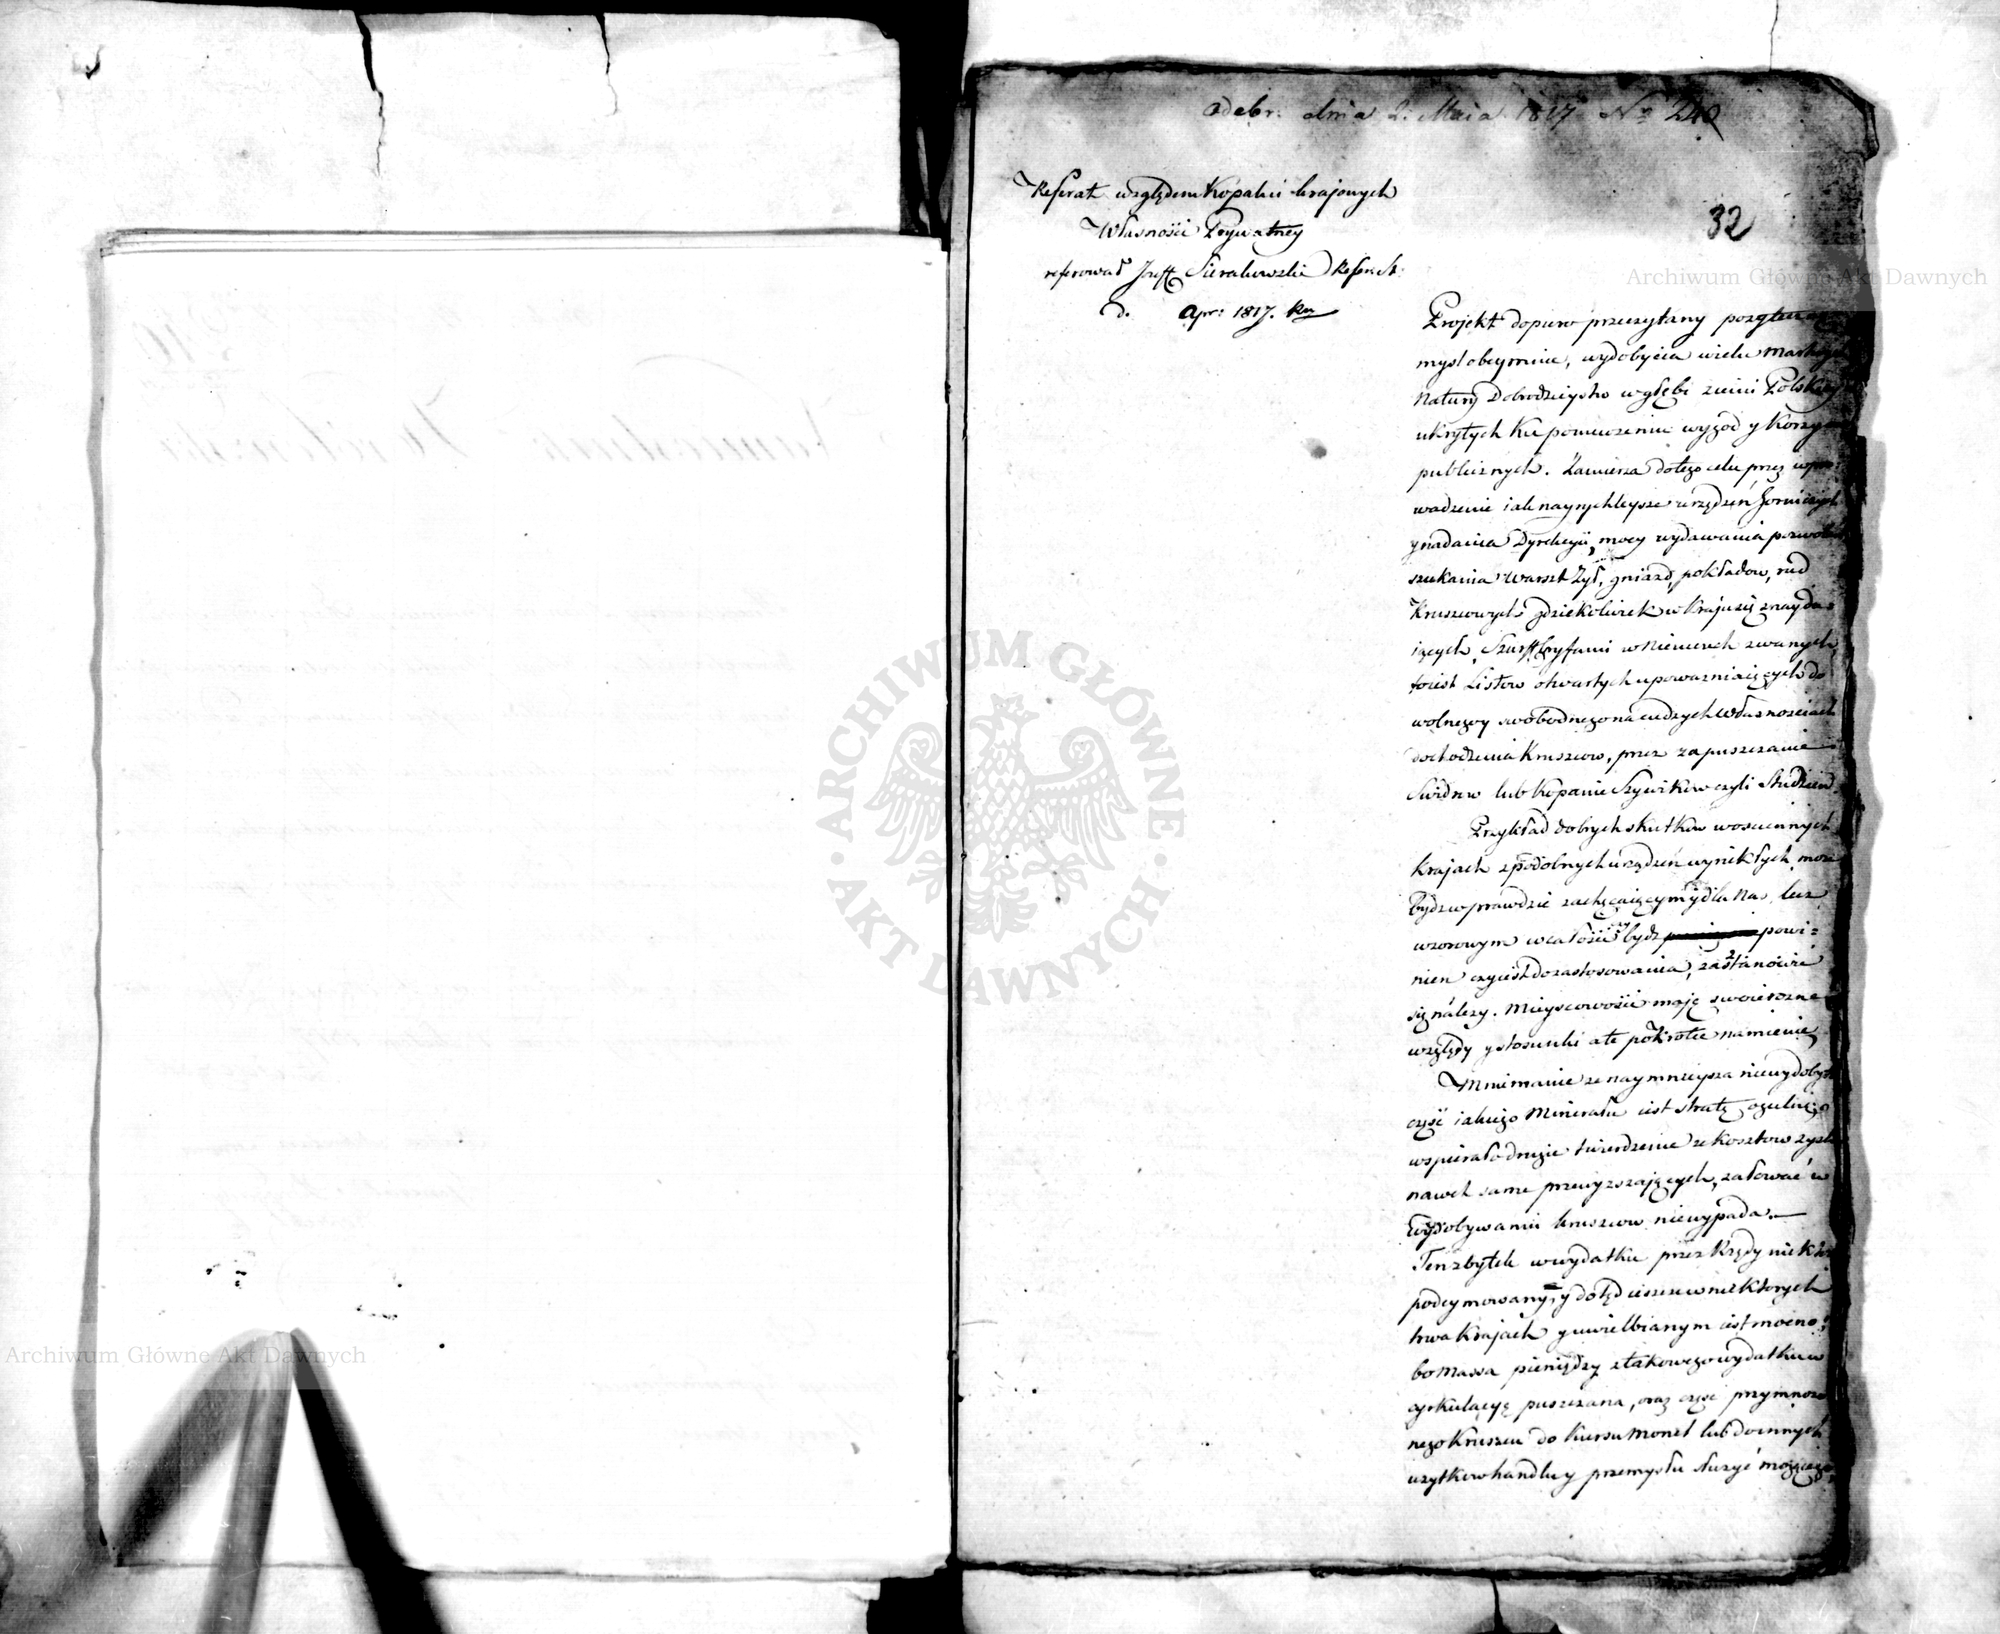 Odebr: dnia 2. Maia 1817 Nr 240
32
Referat względem Kopalń krajowych
Własności Prywatney
referował Józeff Sierakowski Referend:
d. Apr: 1817. Ru
Projekt dopiero przeczytany
mysł obeymuie, wydobycia wielu martwych
Natury Dobrodzieystw w głębi ziemi Polskiey
ukrytych ku pomnożeniu wygod y Korzyści
publicznych. Zamierza do tego celu przez wpro=
wadzenie iak nayrychleysze urządzeń Gorniczych
y nadania Dyrekcyi, mocy wydawania pozwoleń
szukania Warszt Żył, gniazd, pokładow, rud
Kruszcowych gdziekolwiek w Kraju się znaydu=
iących, Szurff Bryfami w Niemczech zwanych
toiest Listow otwartych upoważniaiących do
wolnego y swobodnego na cudzych Własnościach
dochodzenia Kruszcow, przez zapuszczanie
Swidrow lub Kopanie Szybikow czyli Studzien.
Przykład dobrych skutkow w ościennych
Krajach z podobnych urządzeń wynikłych może
bydz wprawdzie zachęcaiącym y dla Nas, lecz
wzorowym w całości czy bydz powi=
nien czy iest do zastosowania, zastanowić
się należy. Mieyscowości mają swoie rozne
względy y stosunki a te pokrotce namienię
Mniemanie ze naymnieysza niewydobyta
część iakiego Minerału iest stratą ogulnego
wspierało drugie twierdzenie ze kosztow zysk
nawet same przewyzszających, załować w
wydobywaniu kruszcow niewypada.—
Ten zbytek w wydatku przez Rządy niektóre
podeymowany, y dotąd ieszcze w niektorych
trwa Krajach y uwielbianym iest mocno;
bo massa pieniędzy z takowego wydatku w
cyrkulacyą puszczana, oraz część przymnożo
nego Kruszcu do kursu monet lub do innych
uzytkow handlu y przemysłu służyć mogącego,
Archiwum Główne Akt Dawnych
Archiwum Główne Akt Dawnych
ARCHIWUM GŁÓWNE AKT DAWNYCH